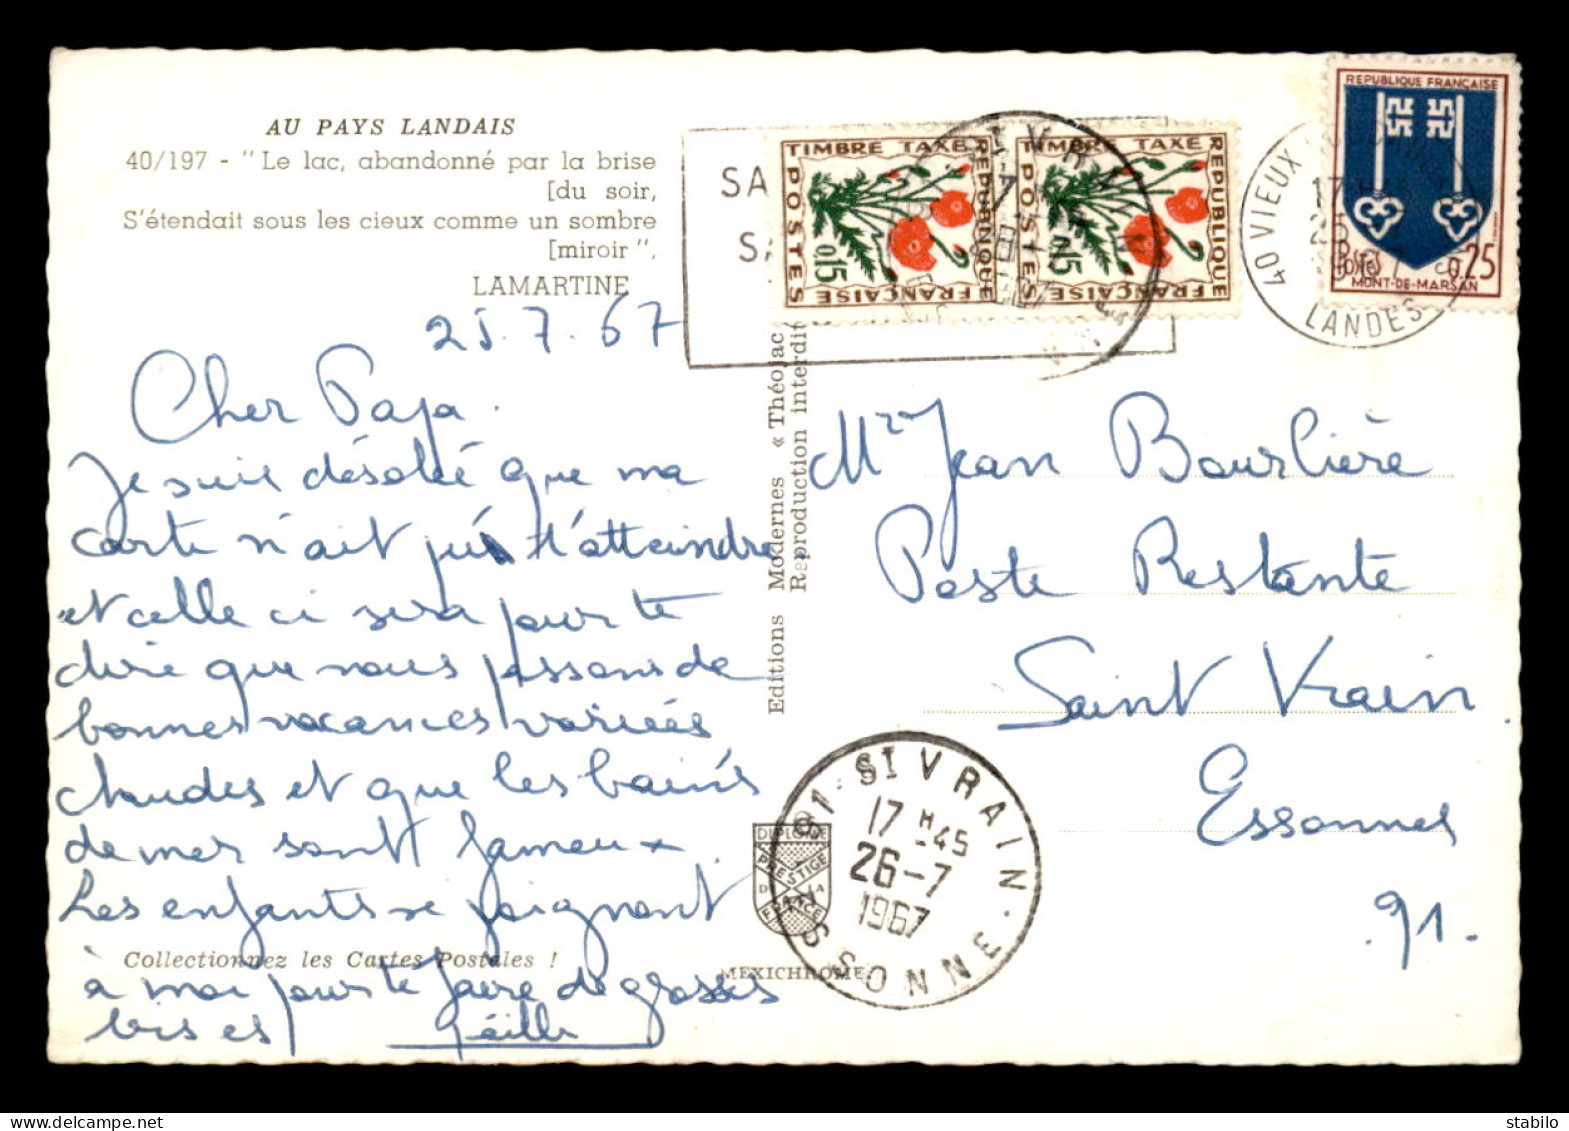 AU PAYS LANDAIS
40/197 - "Le lac, abandonné par la brise
[du soir,
S'étendait sous les cieux comme un sombre
[miroir",
LAMARTINE
25.7.67
Cher Papa.
Je suis désolée que ma
carte n'ait pu t'atteindre
et celle ci sera pour te
dire que nous passons de
bonnes vacances variées
chaudes et que les bains
de mer sont fameux.
Les enfants se joignent
à moi pour te faire de grosses
bises
Collectionnez les Cartes Postales !
Editions Modernes « Théojac
Reproduction interdit
MEXICHROME
DIPLOME
PRESTIGE
DE LA
FRANCE
SA
S
TIMBRE TAXE
REPUBLIQUE
FRANÇAISE
POSTES
0,15
TIMBRE TAXE
REPUBLIQUE
FRANÇAISE
0,15
REPUBLIQUE FRANÇAISE
Postes 0,25
MONT-DE-MARSAN
40 VIEUX
LANDES
Mr Jean Bourlière
Poste Restante
Saint Vrain
Essonnes
.91.
91 - ST VRAIN
17 H 45
26-7
1967
ESSONNE
stabilo
delcampe.net